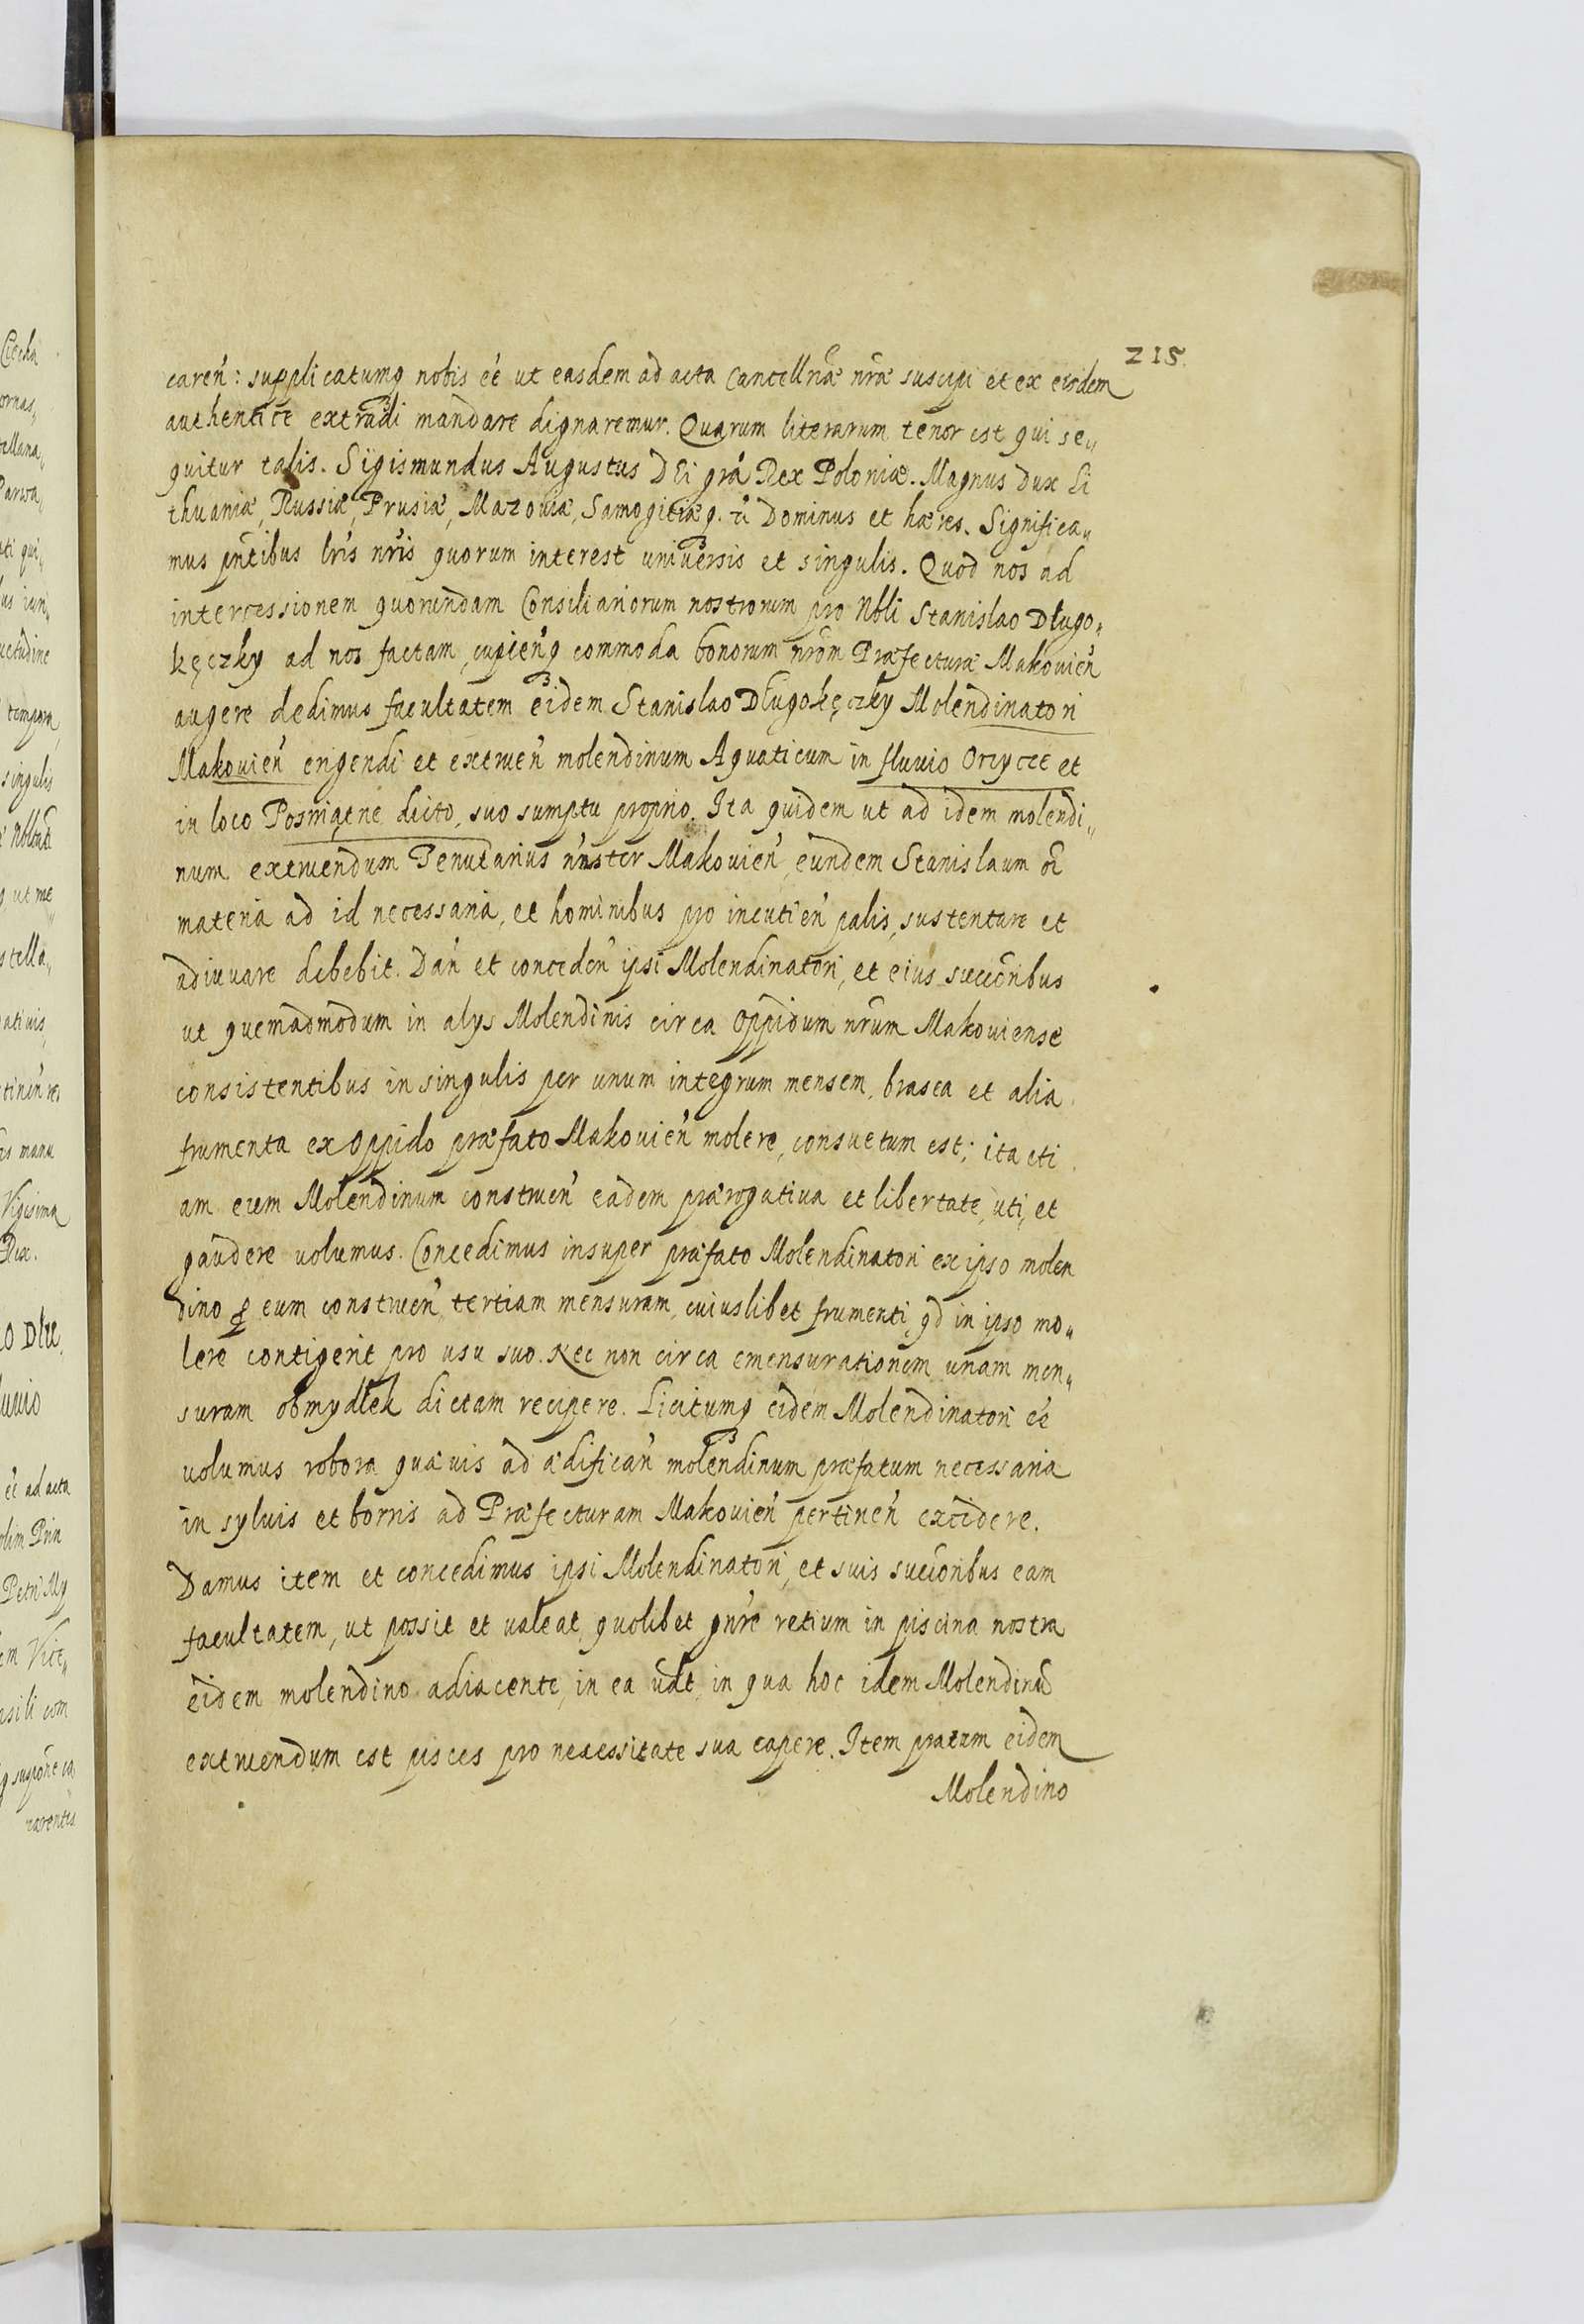 215.
caren̄: supplicatumq nobis eē ut easdem ad acta Cancellr̄iæ nr̄æ suscipi et ex eisdem
authentice extradi mandare dignaremur. Quarum literarum tenor est qui se„
quitur talis. Sigismundus Augustus DEi grā Rex Poloniæ. Magnus Dux Li
thuaniæ, Russiæ, Prusiæ, Mazouiæ, Samogitiæq. Dominus et hæres. Significa„
mus pn̄tibus lr̄is nr̄is quorum interest uniuersis et singulis. Quod nos ad
intercessionem quorundam Consiliariorum nostrorum pro Nbli Stanislao Długo„
kęczky ad nos factam, cupien̄q commoda bonorum nrōm Præfecturæ Makouien̄
augere dedimus facultatem eidem Stanislao Długokęczky Molendinatori
Makouien̄ erigendi et extruen̄ molendinum Aquaticum in fluuio Orzycze et
in loco dicto, suo sumptu proprio. Ita quidem ut ad idem molendi„
num extruendum Tenutarius Makouien̄, eundem Stanislaum
materia ad id necessaria, et hominibus pro incutien̄ palis, sustentare et
adiuuare debebit. Dan̄ et conceden̄ ipsi Molendinatori, et eius succōribus
ut quemadmodum in alys Molendinis circa Oppidum nr̄um Makouiense
consistentibus in singulis per unum integrum mensem, brasea et alia
frumenta ex Oppido præfato Makouien̄ molere, consuetum est; ita eti
am eum Molendinum construen̄ eadem prærogatiua et libertate, uti, et
gaudere uolumus. Concedimus insuper præfato Molendinatori ex ipso molen
dino ꝑ eum construen̄ tertiam mensuram, cuiuslibet frumenti, qd in ipso mo„
lere contigerit pro usu suo. Nec non circa emensurationem unam men„
suram obmydlek dictam recipere. Licitumq eidem Molendinatori eē
uolumus robora quæuis ad ædifican̄ molendinum præfatum necessaria
in syluis et borris ad Præfecturam Makouien̄ pertinen̄ excidere.
Damus item et concedimus ipsi Molendinatori, et suis succōribus eam
facultatem, ut possit et ualeat, quolibet gn̄re retium in piscina nostra
eidem molendino adiacente, in ea udt, in qua hoc idem Molendinū
extruendum est pisces pro necessitate sua capere. Item pratum eidem
Molendino